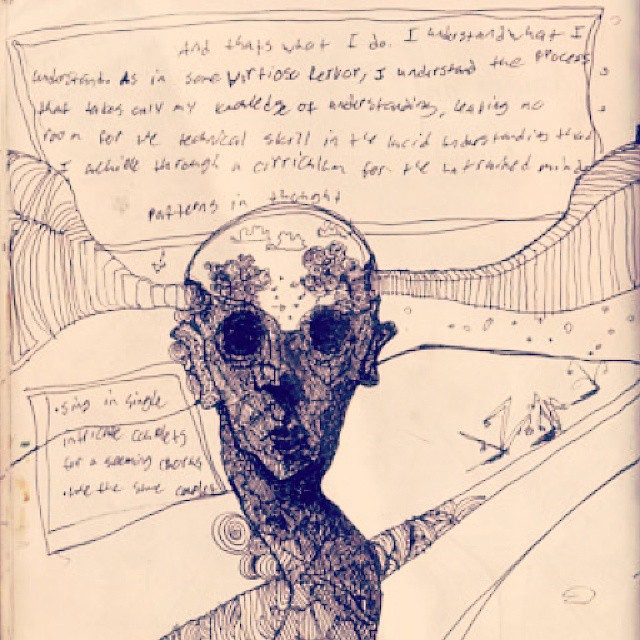 And thats what I do. I understand what I
understand. As in some virtioso fervor, I understand the process
that takes only my knowledge of understanding, leaving no
room for the technical skill in the lucid understanding that
I achieve through a cirriculum for the untrained mind
patterns in thought
sing in single
intricate couplets
for a seeming chorus
the same